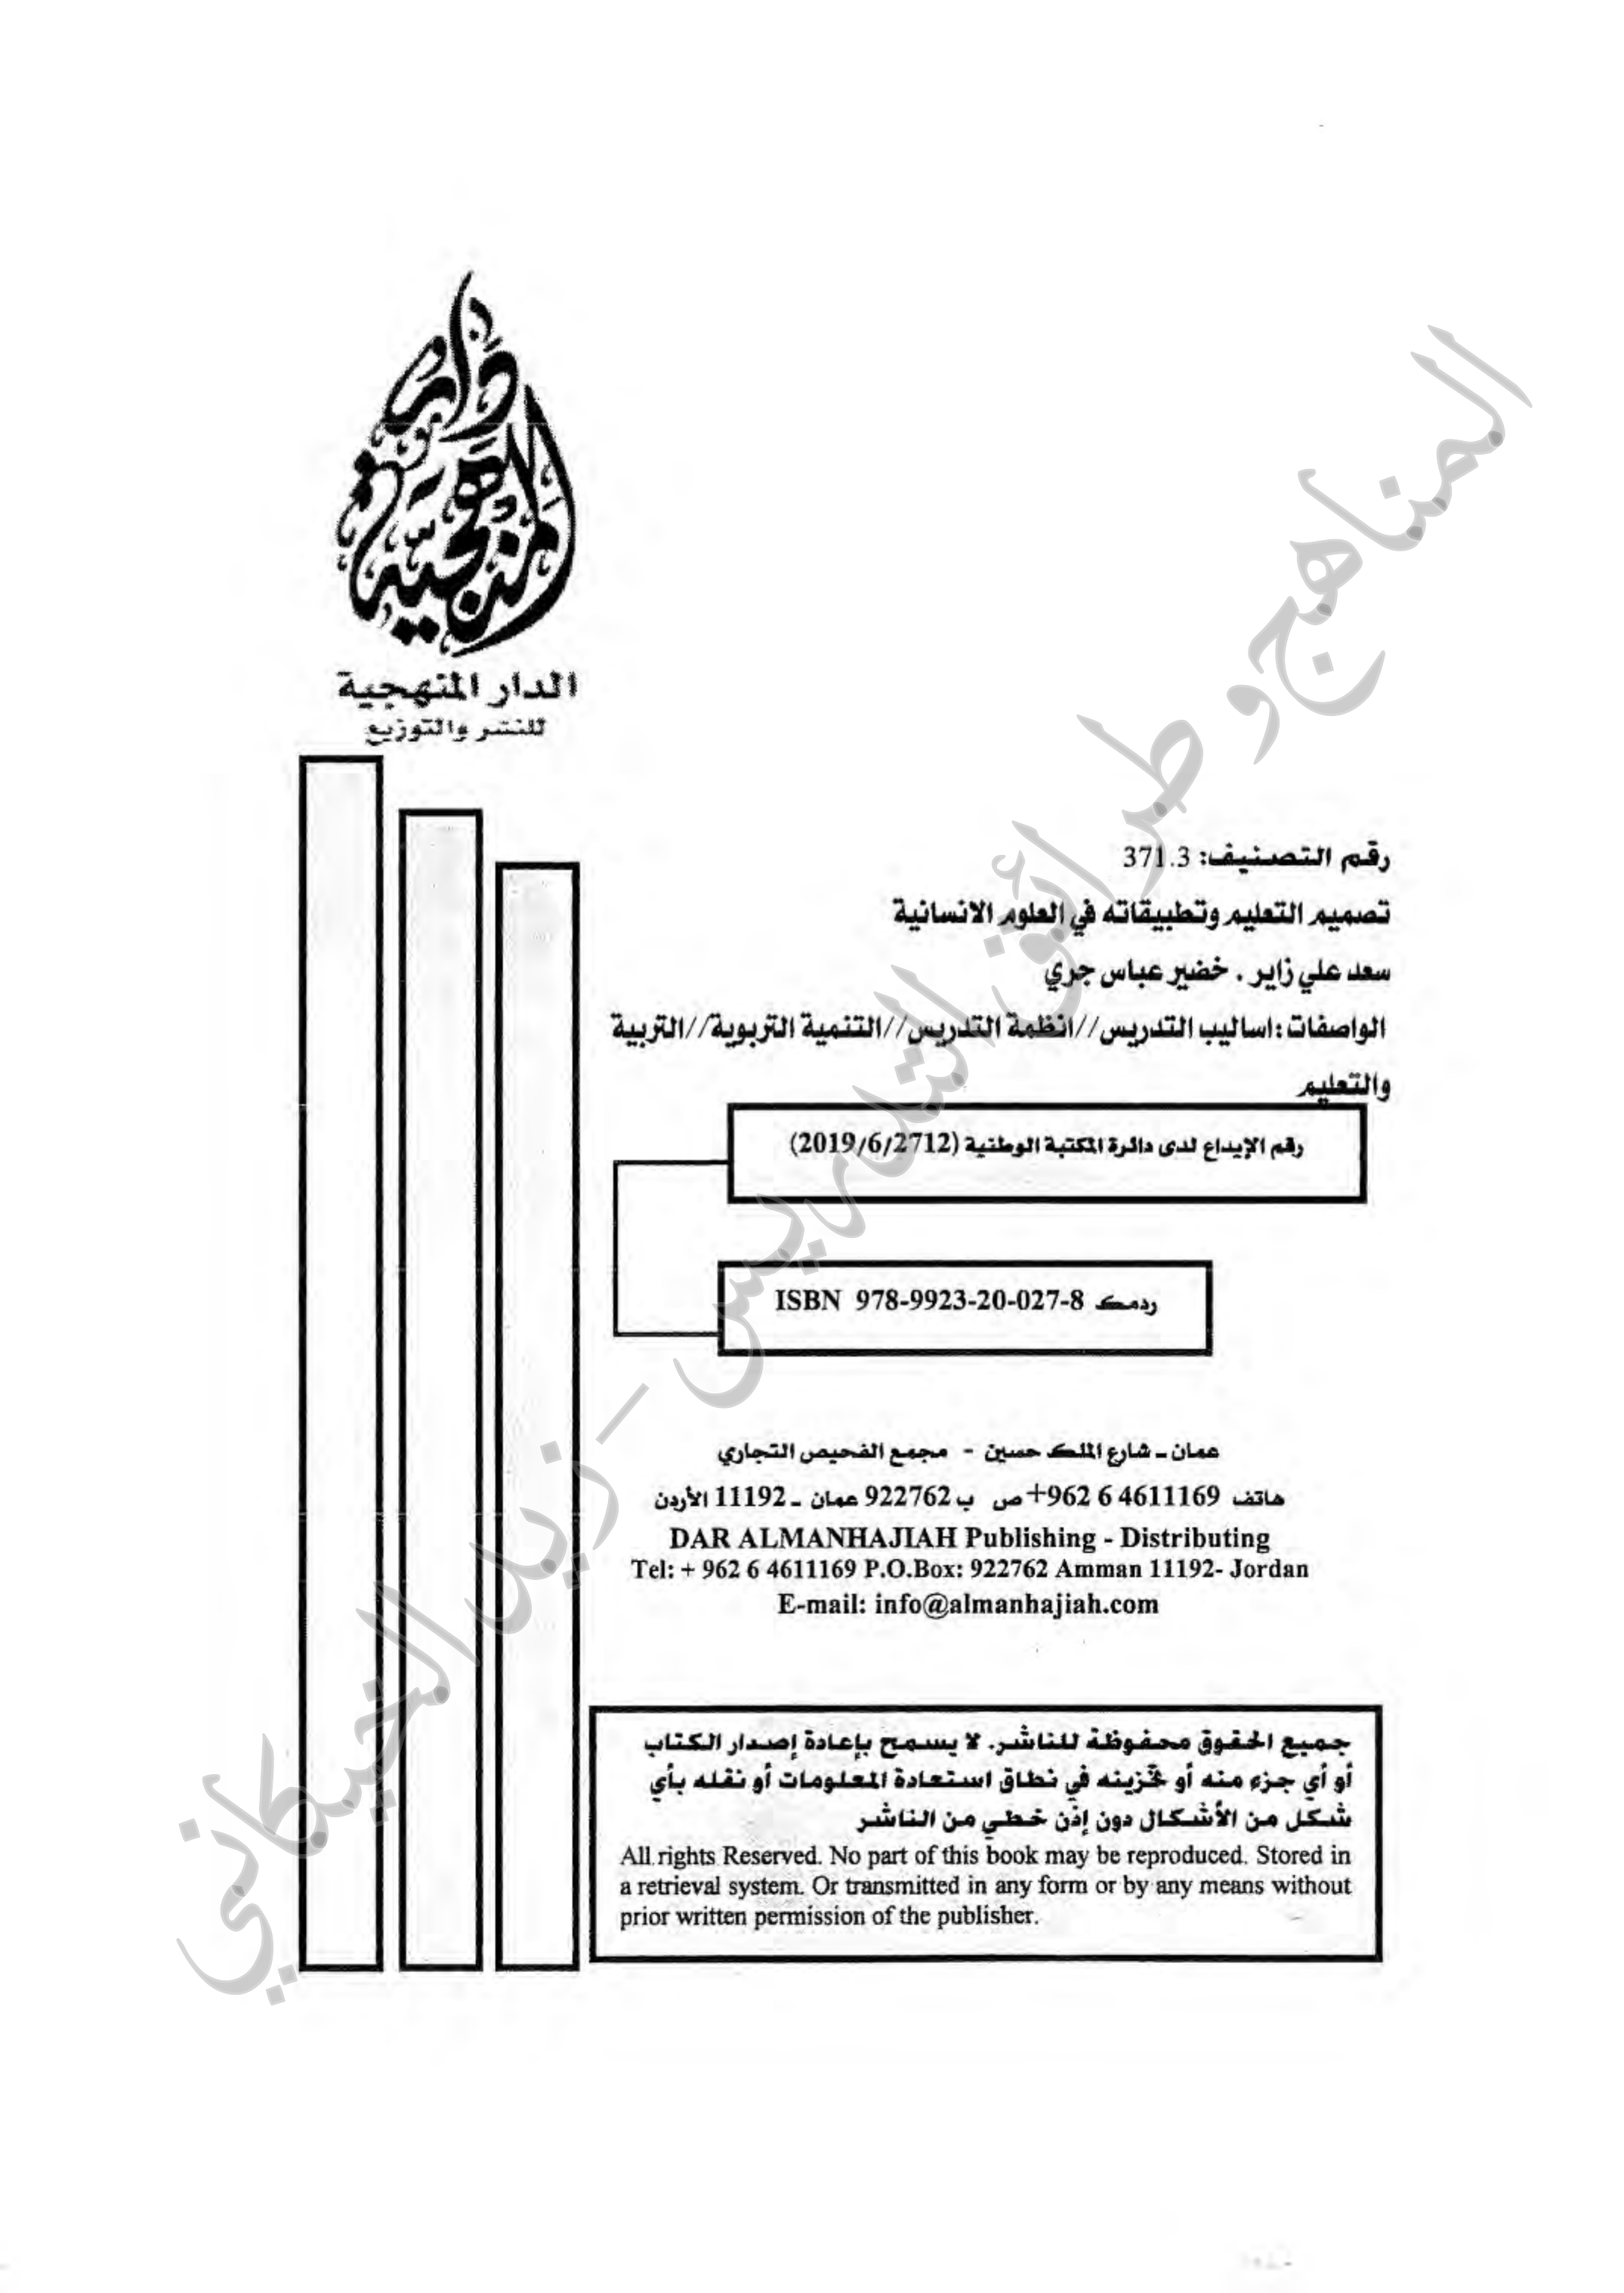 دار المنهجية
الدار المنهجية
للنشر والتوزيع
رقم التصنيف: 371.3
تصميم التعليم وتطبيقاته في العلوم الانسانية
سعد علي زاير . خضير عباس جري
الواصفات:اساليب التدريس//انظمة التدريس//التنمية التربوية//التربية
والتعليم
رقم الإيداع لدى دائرة المكتبة الوطنية (2019/6/2712)
ردمك ISBN 978-9923-20-027-8
عمان ـ شارع الملك حسين - مجمع الفحيص التجاري
هاتف 4611169 6 962+ ص ب 922762 عمان ـ 11192 الأردن
DAR ALMANHAJIAH Publishing - Distributing
Tel: + 962 6 4611169 P.O.Box: 922762 Amman 11192- Jordan
E-mail: info@almanhajiah.com
جميع الحقوق محفوظة للناشر. لا يسمح بإعادة إصدار الكتاب
أو أي جزء منه أو تخزينه في نطاق استعادة المعلومات أو نقله بأي
شكل من الأشكال دون إذن خطي من الناشر
All rights Reserved. No part of this book may be reproduced. Stored in
a retrieval system. Or transmitted in any form or by any means without
prior written permission of the publisher.
المناهج و طرائق التدريس - زيد الخيكاني